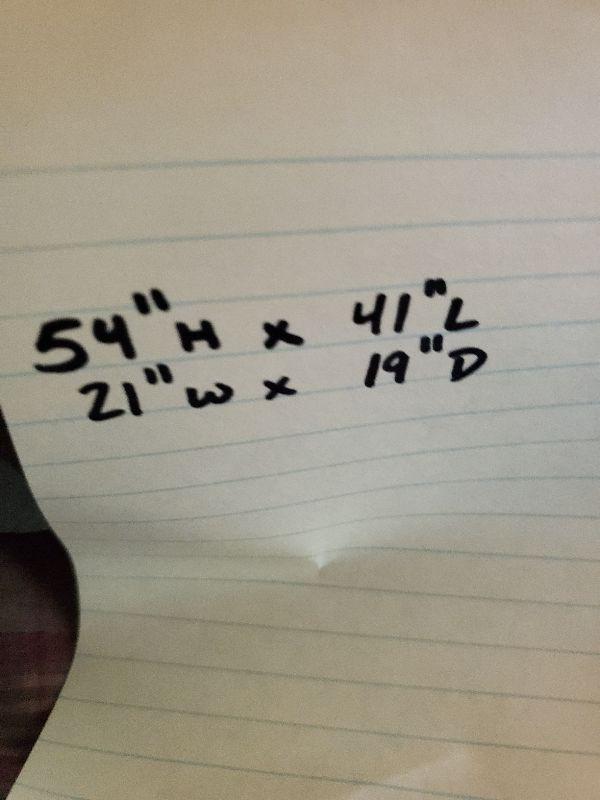 54" H x 41" L
21" W x 19" D